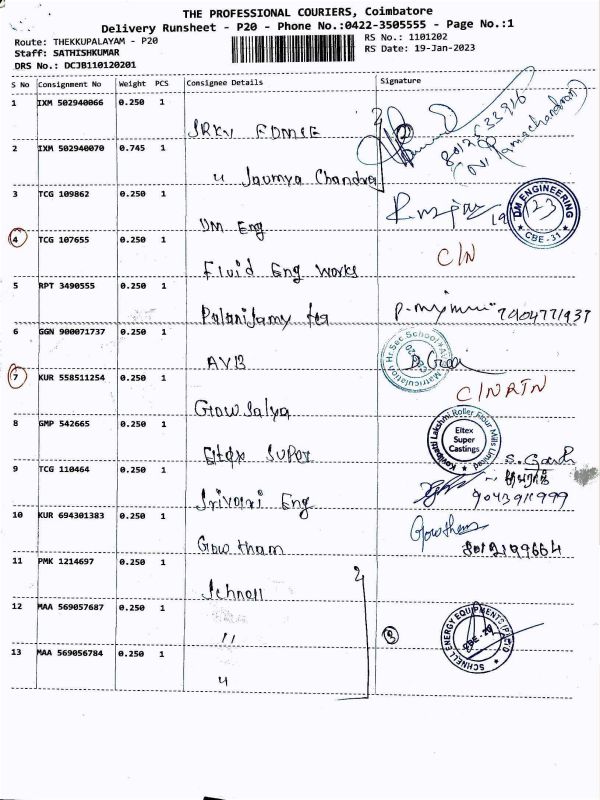 THE PROFESSIONAL COURIERS, Coimbatore
Delivery Runsheet - P20 - Phone No.:0422-3505555 - Page No.:1
Route: THEKKUPALAYAM - P20
Staff: SATHISHKUMAR
DRS No.: DCJB110120201
RS No.: 1101202
RS Date: 19-Jan-2023
S No Consignment No Weight PCS Consignee Details Signature
1 IXM 502940066 0.250 1
2 IXM 502940070 0.745 1
Chandra
3 TCG 109862 0.250 1
DM Eng
DM ENGINEERING
CBE-31
4 TCG 107655 0.250 1
Fluid Eng Works C/N
5 RPT 3490555 0.250 1
7904771937
6 GGN 900071737 0.250 1
AVB
Matriculation Hr Sec School
7 KUR 558511254 0.250 1
Gowsalya C/N RTN
8 GMP 542665 0.250 1
Eltex Super
Kovilpatti Lakshmi Roller Flour Mills Limited
Eltex
Super
Castings
9 TCG 110464 0.250 1
Srivari Eng
9043911999
10 KUR 694301383 0.250 1
Gowtham Gowtham
11 PMK 1214697 0.250 1
Schnell
12 MAA 569057687 0.250 1
"
SCHNELL ENERGY EQUIPMENTS (P) LTD
13 MAA 569056784 0.250 1